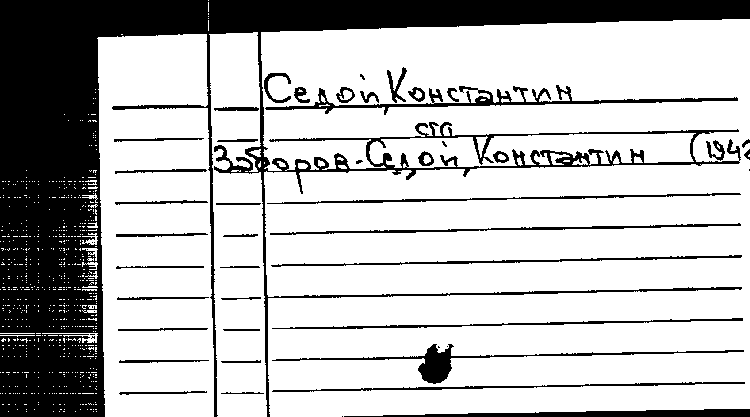 Седой, Константин
см
Заборов-Седой, Константин (194